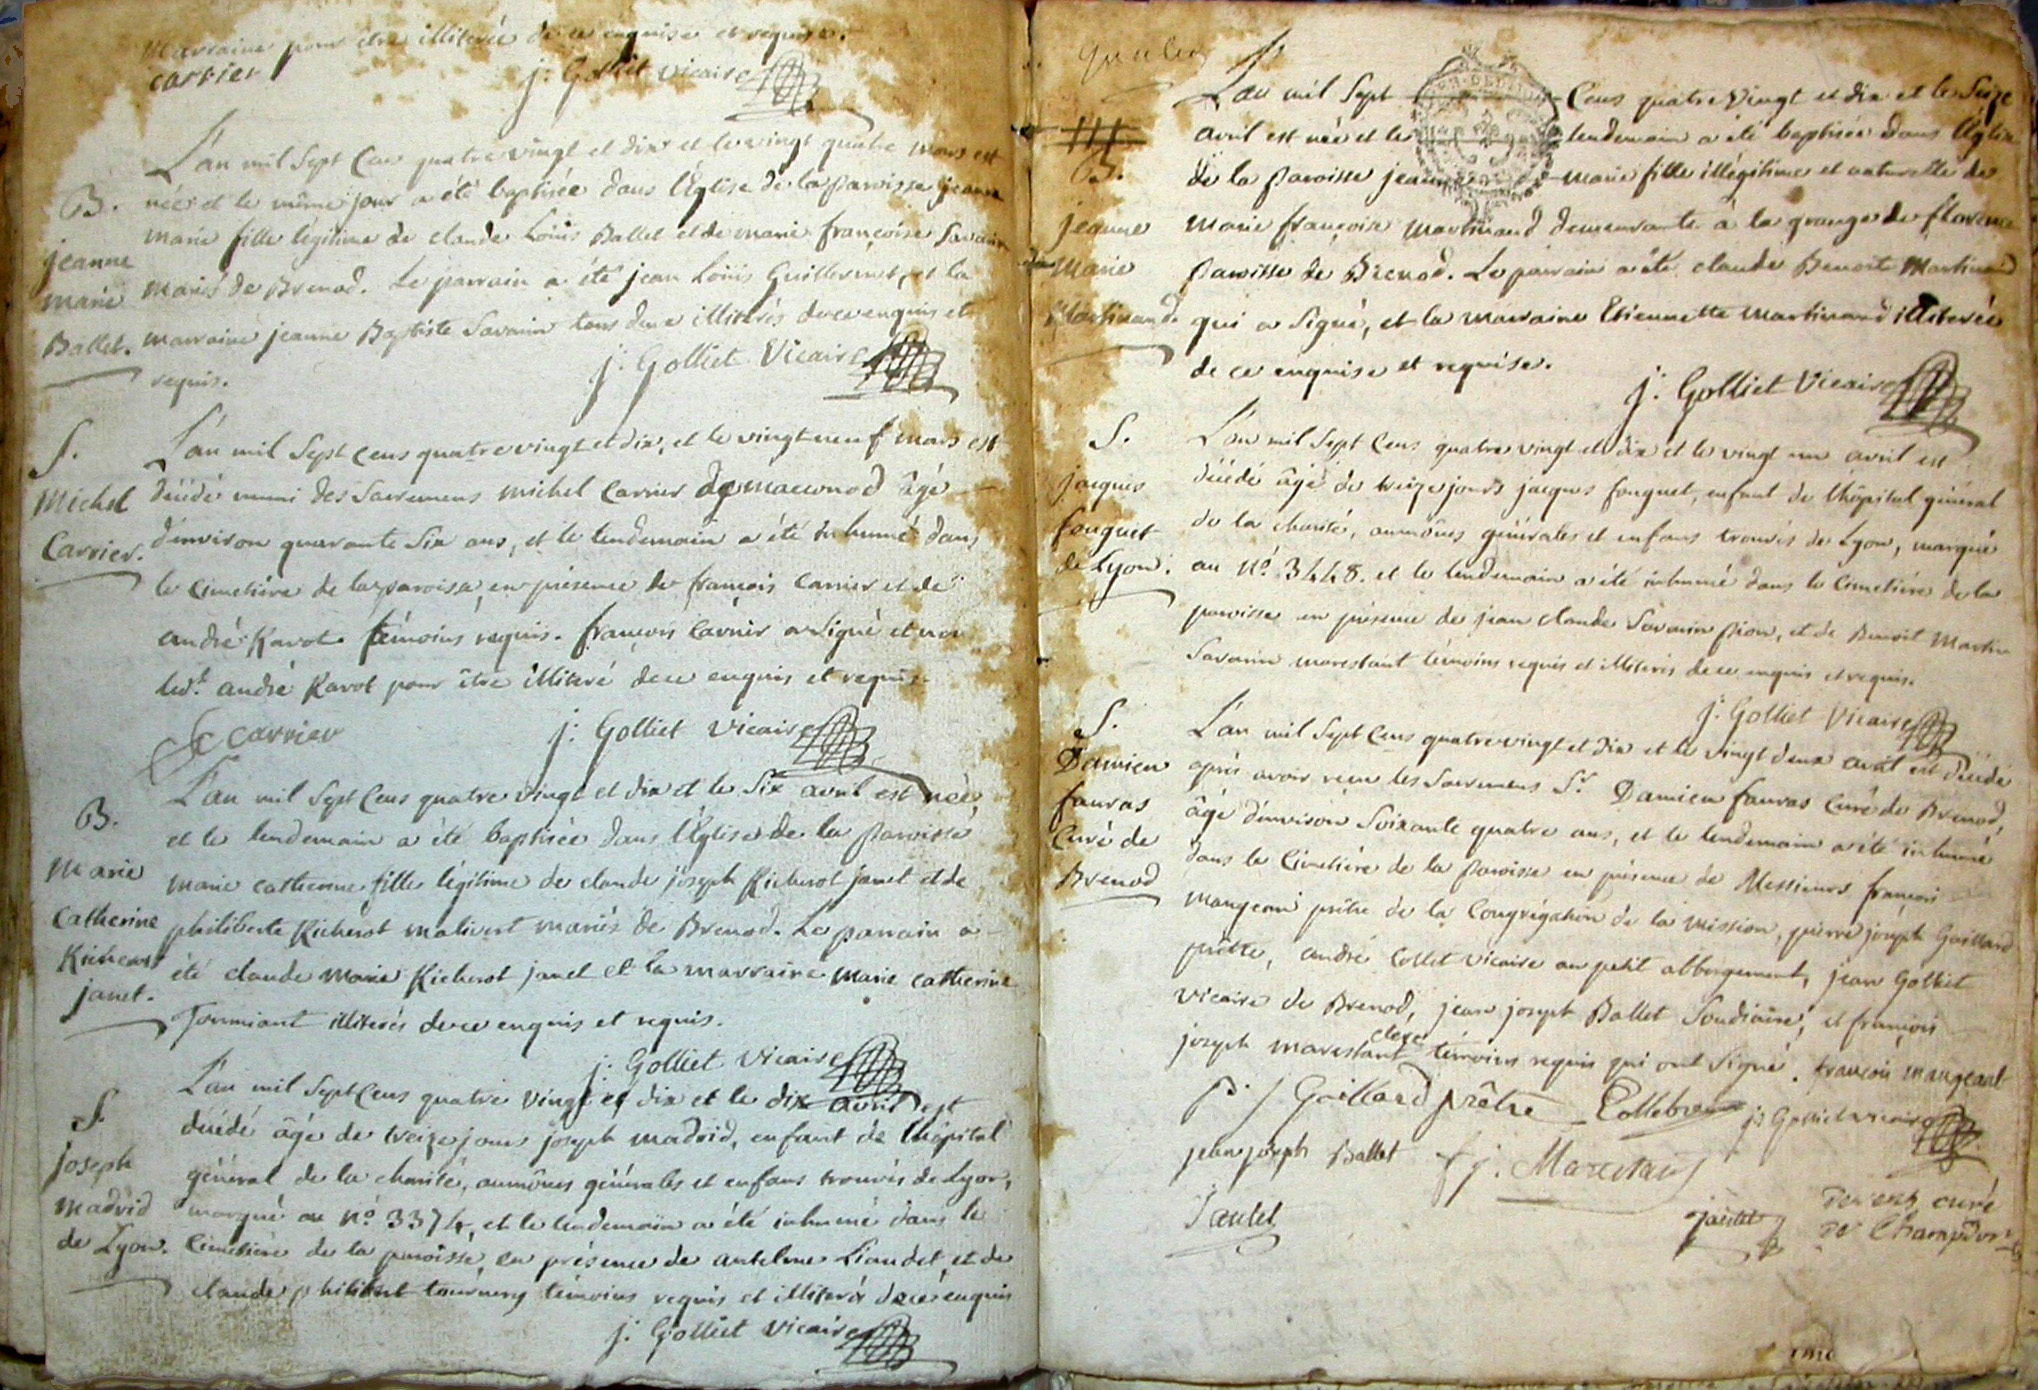 marraine pour être illiterée de ce enquise et requise.
carrier
j: Golliet Vicaire
L'an mil Sept Cens quatre vingt et dix et le vingt quatre mars est
B. née et le même jour a été baptisée dans l'Eglise de la paroisse jeanne
marie fille légitime de claude Loüis Ballet et de marie françoise Savarin
jeanne
marie mariés de Brenod. Le parrain a été jean Loüis Guillermet, et la
Ballet. marraine jeanne Baptiste Savarin tous deux illiterés de ce enquis et
requis.
j: Golliet Vicaire
S. L'an mil Sept Cens quatre vingt et dix, et le vingt neuf mars est
Michel décédé muni des Sacremens michel Carrier de macconod âgé
Carrier. d'environ quarante Six ans, et le lendemain a été inhumé dans
le Cimetière de la paroisse en présence de françois Carrier et de
andré Ravot témoins requis. françois Carrier a Signé et non
led.t andré Ravot pour être illiteré de ce enquis et requis.
f carrier
j: Golliet Vicaire
L'an mil Sept Cens quatre vingt et dix et le Six avril est née
B. et le lendemain a été baptisée dans l'Eglise de la Paroisse
marie marie catherine fille légitime de claude joseph Richerot janet et de
Catherine philiberte Richerot malivert mariés de Brenod. Le parrain a
Richerot été claude marie Richerot janet et la marraine marie catherine
janet. Tourniant illiterés de ce enquis et requis.
j: Golliet Vicaire
L'an mil Sept Cens quatre vingt et dix et le dix avril est
S. décédé âgé de treize jours joseph madrid, enfant de l'hôpital
joseph général de la charité, aumônes générales et enfans trouvés de Lyon,
madrid marqué au N.o 3374, et le lendemain a été inhumé dans le
de Lyon. Cimetière de la paroisse, en présence de antelme Liaudet, et de
claude philibert tournery témoins requis et illiterés de ce enquis
j: Golliet Vicaire
L'an mil Sept Cens quatre Vingt et dix et le Seize
avril est née et le lendemain a été baptisée dans l'Eglise
B. de la Paroisse jeanne marie fille illégitime et naturelle de
jeanne marie françoise Martinand demeurante à la grange de florence
marie paroisse de Brenod. Le parrain a été claude Benoit Martinand
Martinand. qui a Signé, et la marraine Etiennette Martinand illiterée
de ce enquise et requise.
j: Golliet Vicaire
S. L'an mil Sept Cens quatre vingt et dix et le vingt un avril est
jacques décédé âgé de treize jours jacques fouquet, enfant de l'hôpital général
fouquet de la charité, aumônes générales et enfans trouvés de Lyon, marqué
de Lyon. au N.o 3448. et le lendemain a été inhumé dans le Cimetière de la
paroisse en présence de jean claude Savarin Pion, et de Benoit Martin
Savarin marestant témoins requis et illiterés de ce enquis et requis.
j: Golliet Vicaire
S. L'an mil Sept Cens quatre vingt et dix et le vingt deux avril est décédé
Damien après avoir reçu les Sacremens S.r Damien fauras Curé de Brenod,
fauras âgé d'environ Soixante quatre ans, et le lendemain a été inhumé
Curé de dans le Cimetière de la Paroisse en présence de Messieurs françois
Brenod maugean prêtre de la Congrégation de la mission, pierre joseph Gaillard
prêtre, andré Collet Vicaire au petit abbergement, jean Golliet
Vicaire de Brenod, jean joseph Ballet Soudiacre, et françois
joseph marestant clerc témoins requis qui ont Signé. françois maugean
p. j Gaillard prêtre Collet j: Golliet vicaire
jean joseph Ballet f j. Marestant
Jantet jantet curé
de Champdor